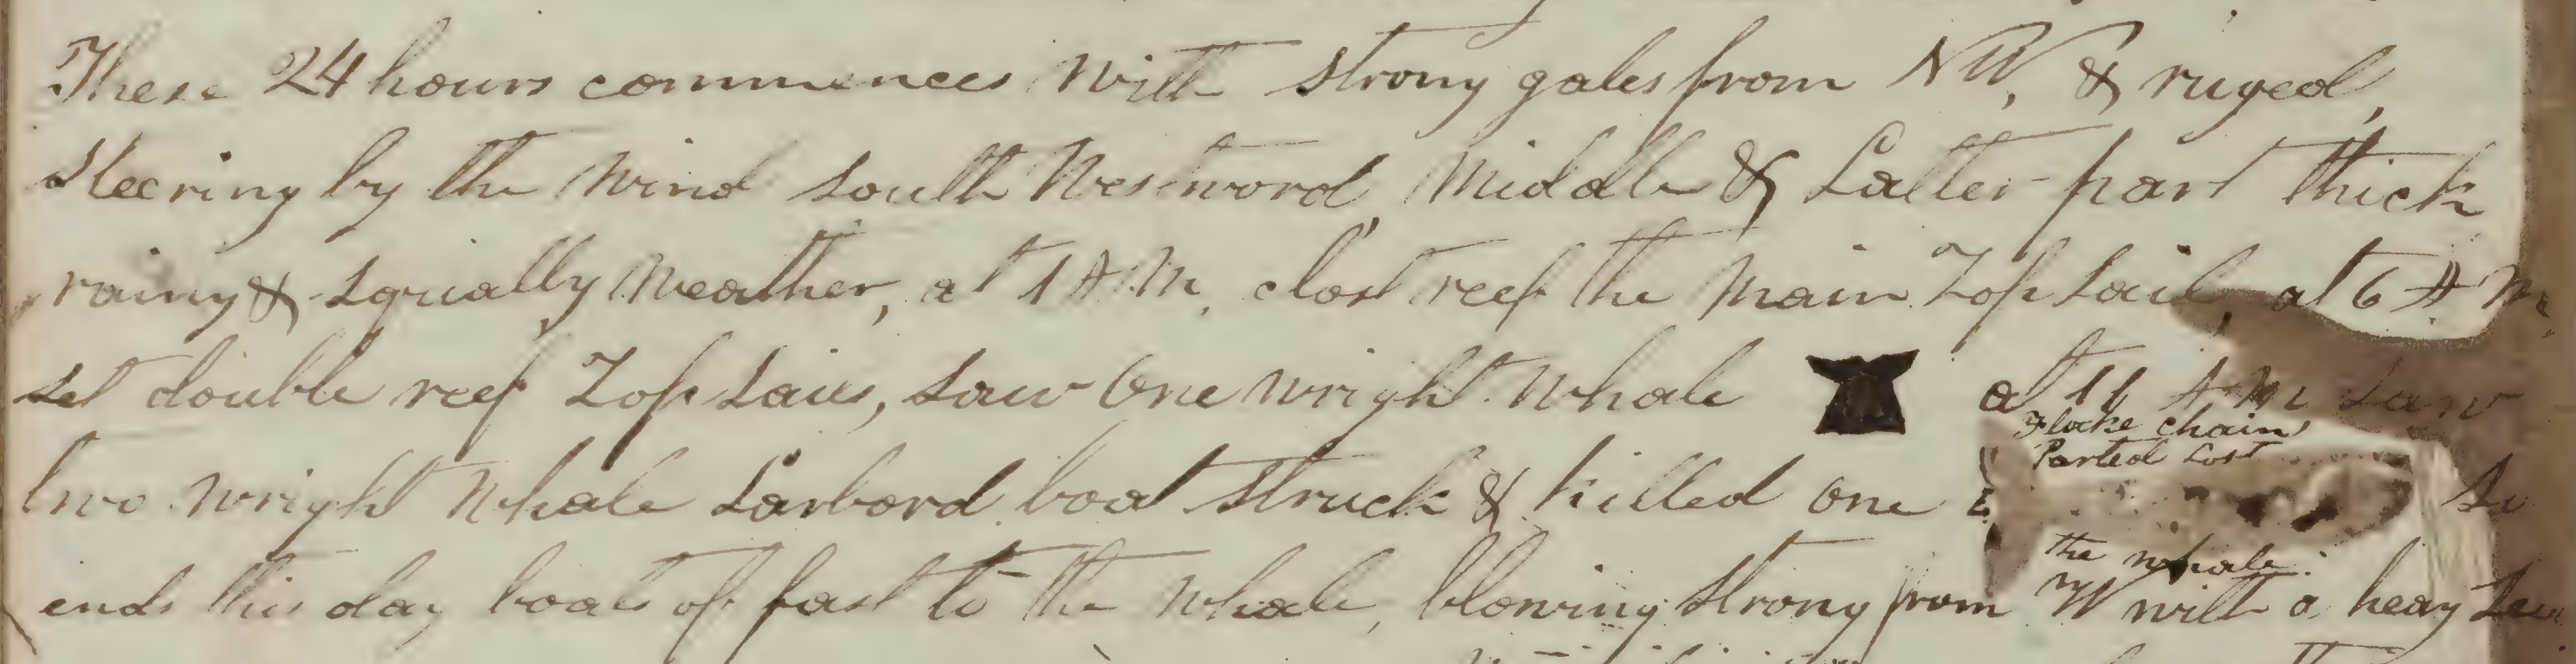 These 24 hours commences with strong gales from NW, & ruged,
steering by the wind south westword, Middle & Latter part thick
rainy & squally weather, at 1 AM, clost reef the main Top sail, at 6 A M,
set double reef Top sails, saw one wright whale at 11 A M saw
two wright whale Larbord boat struck & killed one so
Flocke chain
Parted Lost
the whale
ends this day boats of fast to the whale, blowing strong from W with a heavy sea